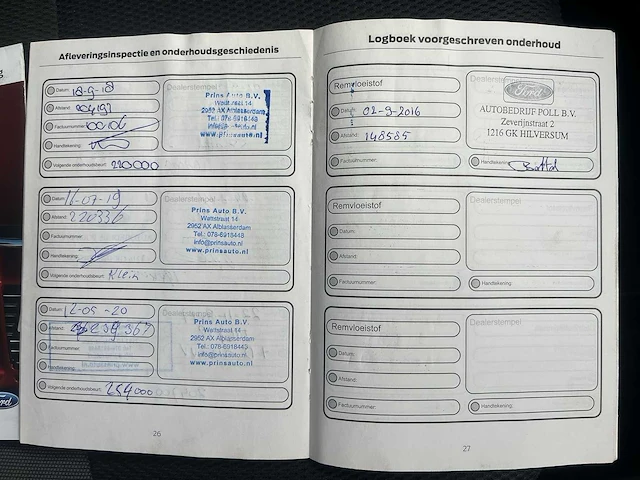 Afleveringsinspectie en onderhoudsgeschiedenis
Datum: 18-9-18
Dealerstempel
Afstand:
Factuurnummer:
Handtekening:
Volgende onderhoudsbeurt: 220000
Prins Auto B.V.
Wattstraat 14
2952 AX Alblasserdam
Tel.: 078-6918448
info@prinsauto.nl
www.prinsauto.nl
Datum: 16-07-19
Dealerstempel
Afstand: 220336
Factuurnummer:
Handtekening:
Volgende onderhoudsbeurt: Klein
Prins Auto B.V.
Wattstraat 14
2952 AX Alblasserdam
Tel.: 078-6918448
info@prinsauto.nl
www.prinsauto.nl
Datum: 12-05-20
Dealerstempel
Afstand: 239.367
Factuurnummer:
Handtekening:
Volgende onderhoudsbeurt: 254000
Prins Auto B.V.
Wattstraat 14
2952 AX Alblasserdam
Tel.: 078-6918448
info@prinsauto.nl
www.prinsauto.nl
26
Logboek voorgeschreven onderhoud
Remvloeistof
Dealerstempel
Datum: 02-9-2016
Afstand: 148585
Factuurnummer:
Handtekening:
Ford
AUTOBEDRIJF POLL B.V.
Zeverijnstraat 2
1216 GK HILVERSUM
Remvloeistof
Dealerstempel
Datum:
Afstand:
Factuurnummer:
Handtekening:
Remvloeistof
Dealerstempel
Datum:
Afstand:
Factuurnummer:
Handtekening:
27
Ford